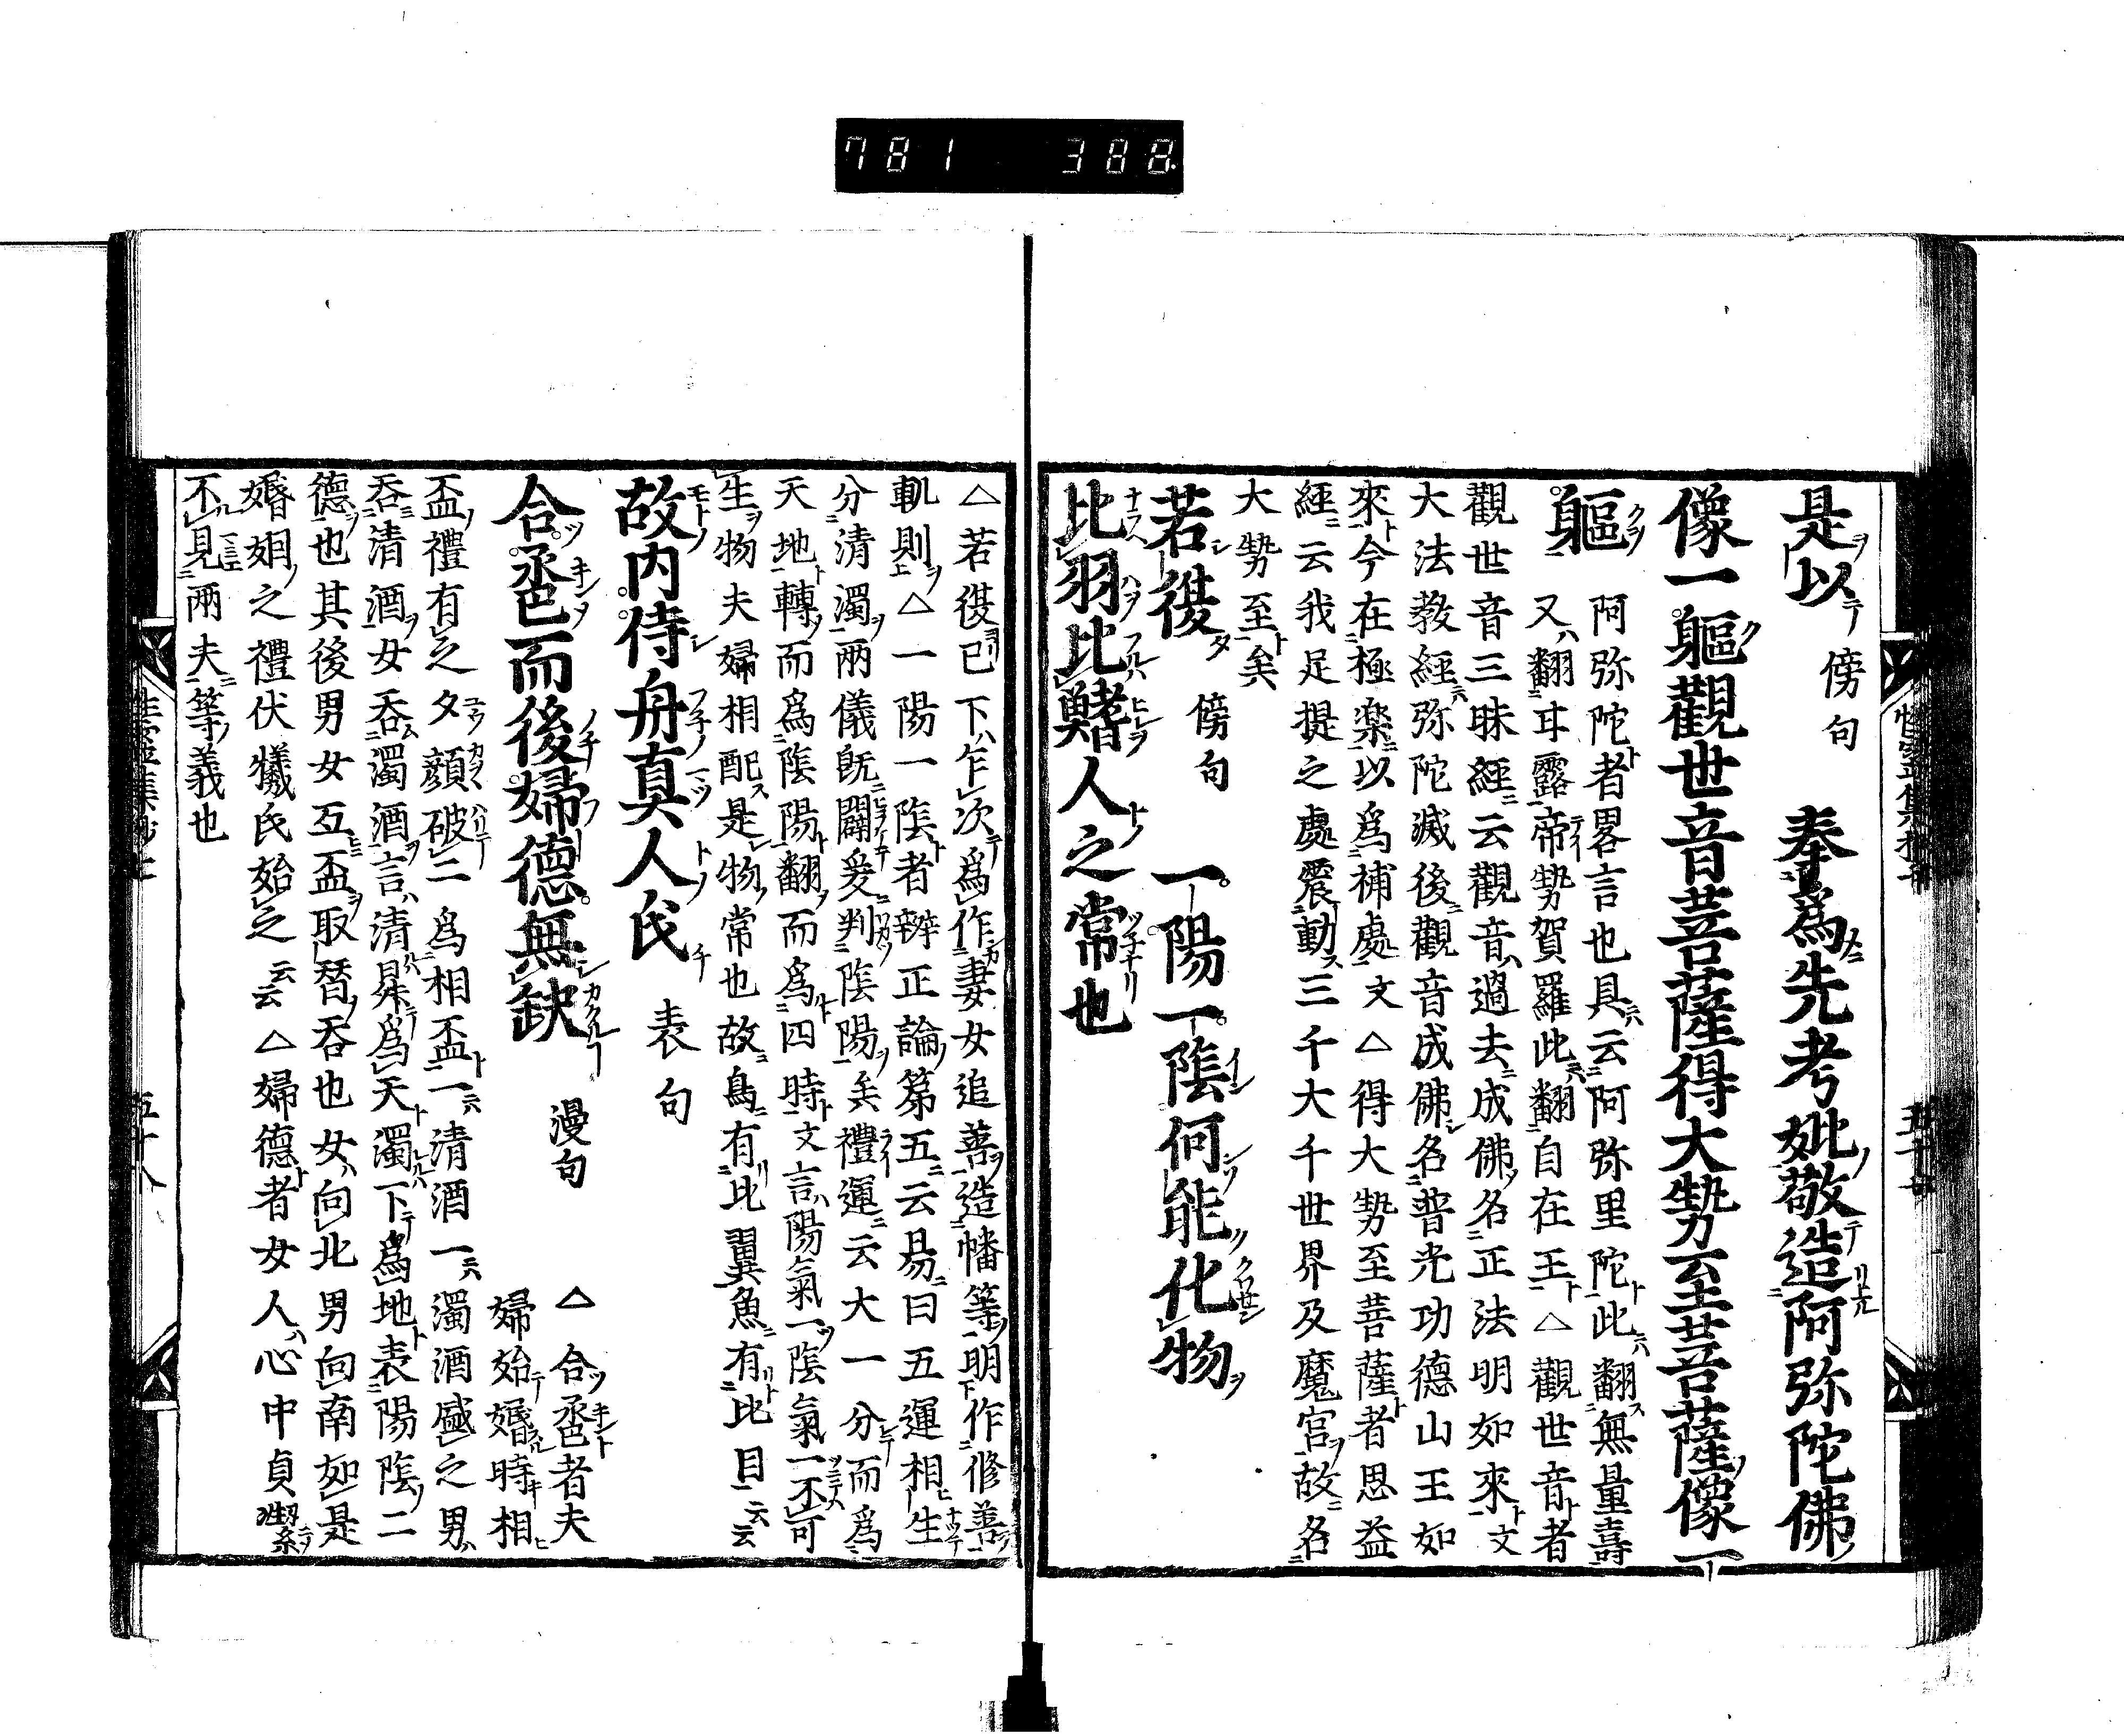 781 388
是以 傍句 奉爲先考妣敬造阿弥陀佛
像一軀觀世音菩薩得大勢至菩薩像一
軀 阿弥陀者畧言也具云阿弥里陀此翻無量壽
又翻耳露帝勢賀羅此翻自在王△觀世音者
觀世音三昧經云觀音過去成佛名正法明如來文
大法教經弥陀滅後觀音成佛名普光功德山王如
來今在極楽以爲補處文△得大勢至菩薩者思益
經云我足提之處震動三千大千世界及魔宮故名
大勢至矣
若復 傍句 一陽一陰何能化物
比羽比鰭人之常也
△若復已下乍次爲作妻女追善造幡等明作修善
軌則△一陽一陰者辨正論第五云易曰五運相生
分清濁兩儀既闢爰判陰陽矣禮運云大一分而爲
天地轉而爲陰陽翻而爲四時文言陽氣一陰氣一不可
生物夫婦相配是物常也故鳥有比翼魚有比目云云
故内侍舟真人氏 表句
合巹而後婦德無缺 漫句 △合巹者夫
婦始婚時相
盃禮有之夕顔破二爲相盃一清酒一濁酒盛之男
呑清酒女呑濁酒言清昇爲天濁下爲地表陽陰二
德也其後男女互盃取替呑也女向北男向南如是
婚姻之禮伏犠氏始之云云△婦德者女人心中貞潔
不見兩夫等義也
五十八